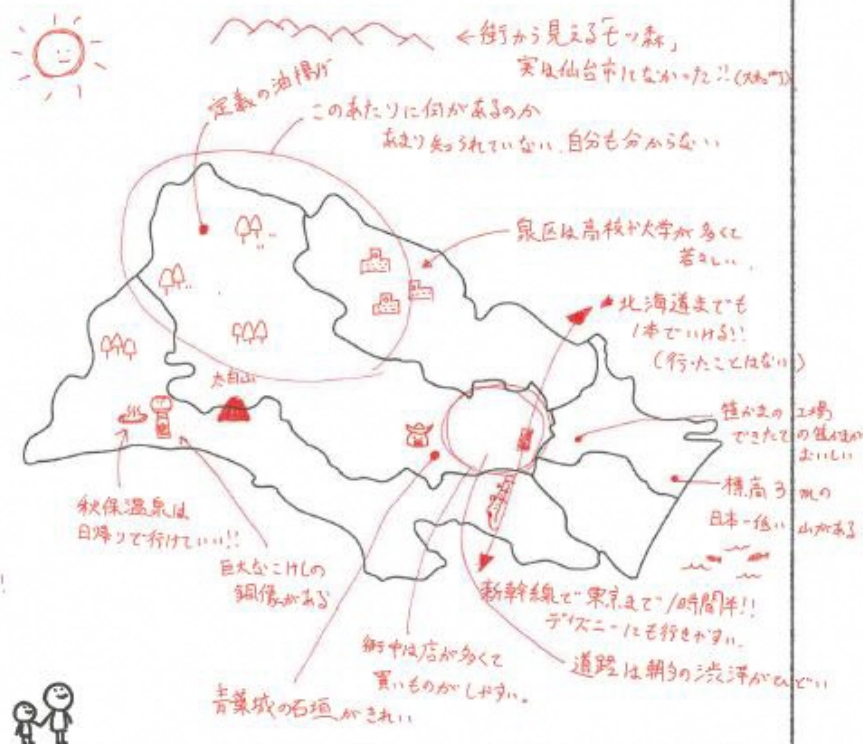 ←街から見える「七ツ森」
実は仙台市じゃなかった!!(大和町)
定義の油揚げ
このあたりに何があるのか
あまり知られていない、自分も分からない
泉区は高校や大学が多くて
若々しい、
北海道までも
1本でいける!!
(行ったことはない)
太白山
笹かまの工場
できたての笹かまが
おいしい
標高3mの
日本一低い山がある
秋保温泉は
日帰りで行けていい!!
巨大なこけしの
銅像がある
新幹線で東京まで1時間半!!
ディズニーにも行きやすい。
街中は店が多くて
買いものがしやすい。
道路は朝夕の渋滞がひどい
青葉城の石垣がきれい
!